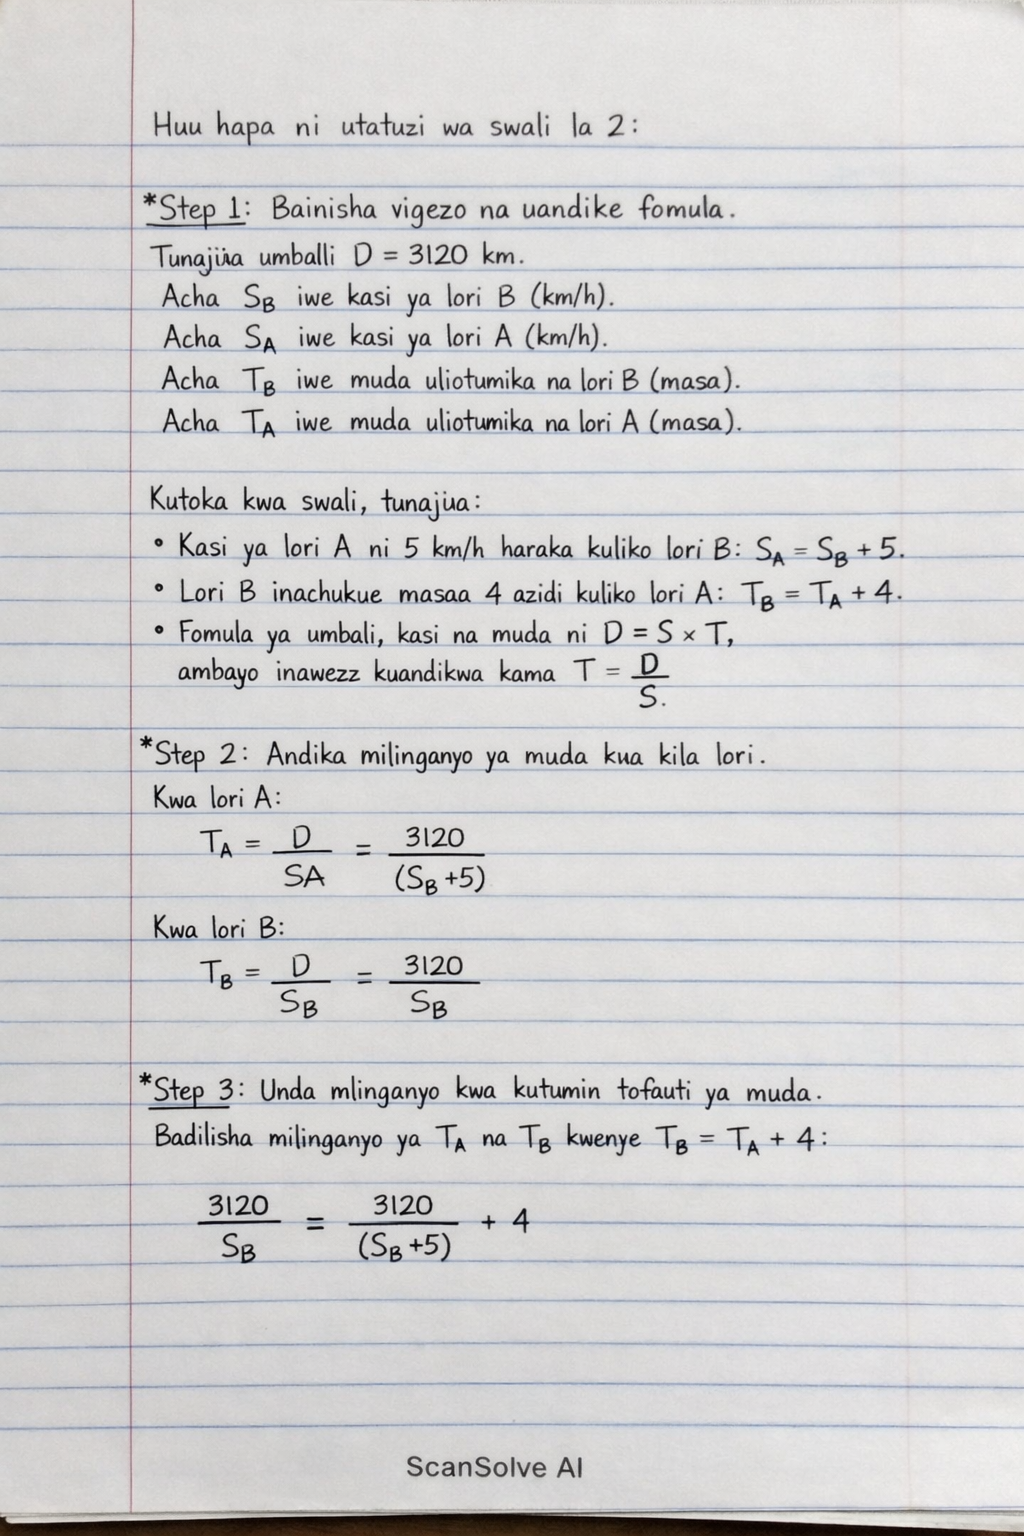 Huu hapa ni utatuzi wa swali la 2:
*Step 1: Bainisha vigezo na uandike fomula.
Tunajua umballi D = 3120 km.
Acha S_B iwe kasi ya lori B (km/h).
Acha S_A iwe kasi ya lori A (km/h).
Acha T_B iwe muda uliotumika na lori B (masa).
Acha T_A iwe muda uliotumika na lori A (masa).
Kutoka kwa swali, tunajua:
• Kasi ya lori A ni 5 km/h haraka kuliko lori B: S_A = S_B + 5.
• Lori B inachukue masaa 4 azidi kuliko lori A: T_B = T_A + 4.
• Fomula ya umbali, kasi na muda ni D = S × T,
ambayo inawezz kuandikwa kama T = D/S.
*Step 2: Andika milinganyo ya muda kua kila lori.
Kwa lori A:
T_A = D/SA = 3120/(S_B +5)
Kwa lori B:
T_B = D/S_B = 3120/S_B
*Step 3: Unda mlinganyo kwa kutumin tofauti ya muda.
Badilisha milinganyo ya T_A na T_B kwenye T_B = T_A + 4:
3120/S_B = 3120/(S_B +5) + 4
ScanSolve AI